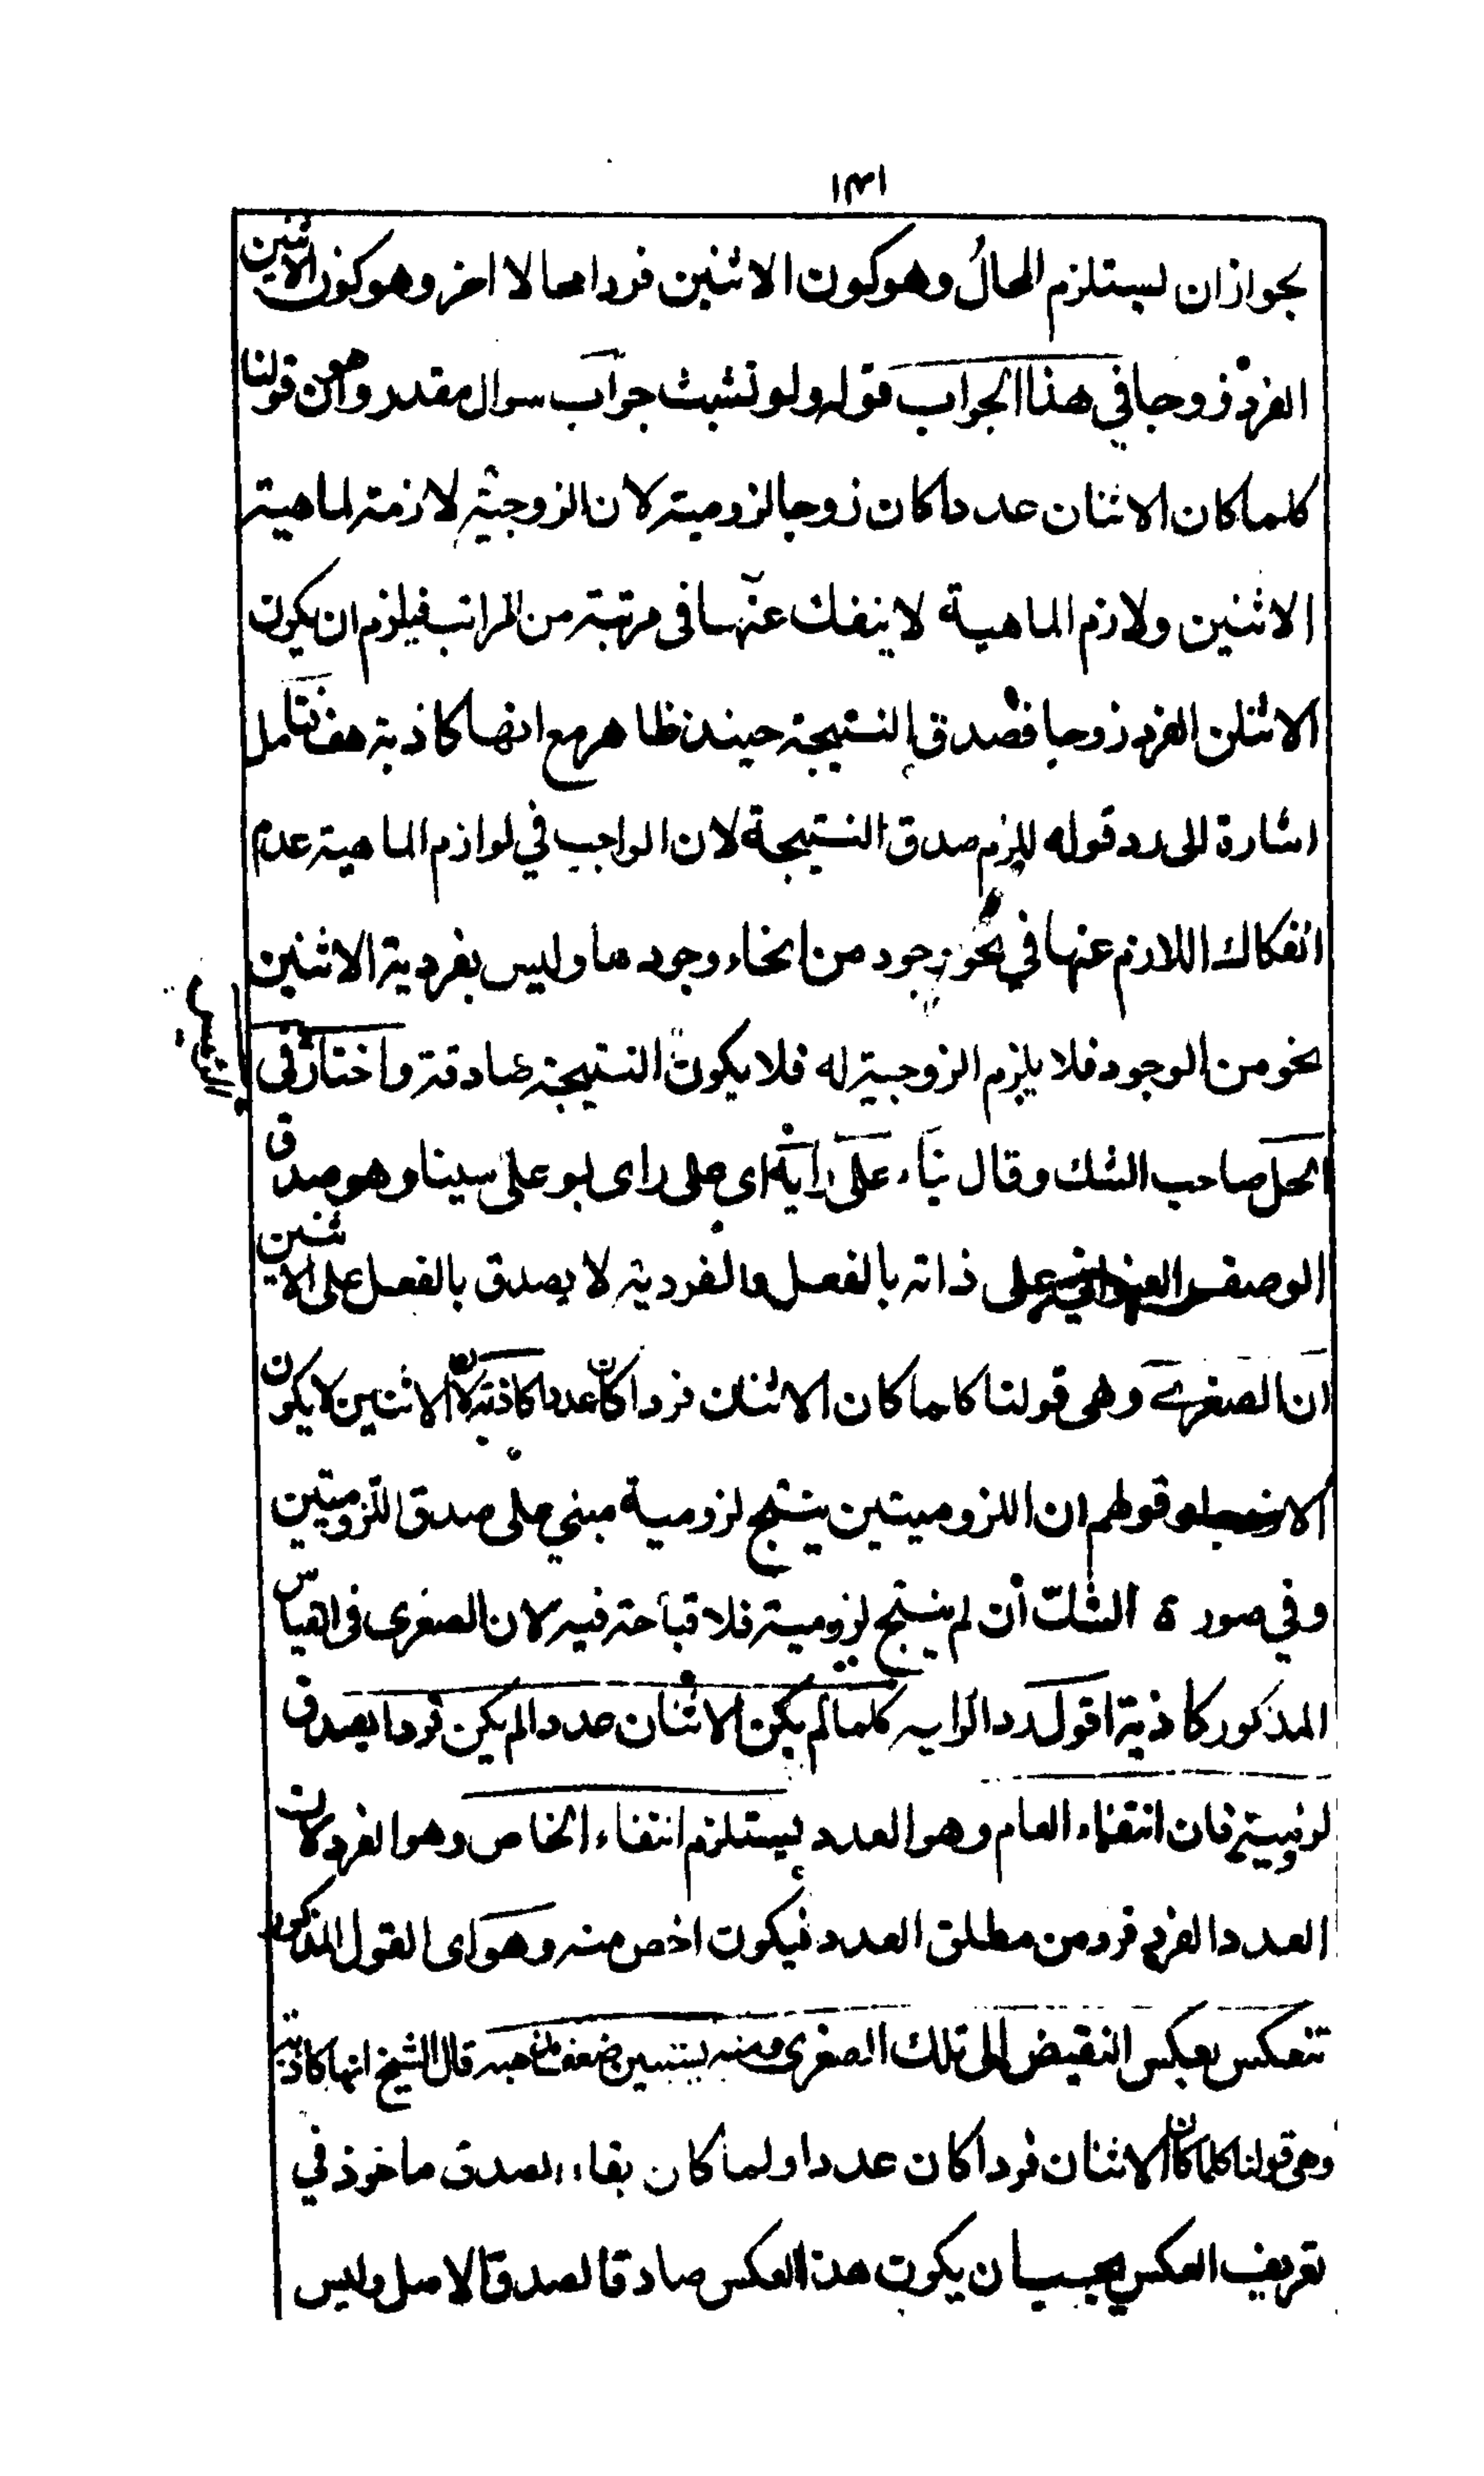 ١٣١
بجوازان يستلزم المحالُ وهو كون الاثنين فردا محالا اخر وهو كون الاثنين
الفرد زوجا في هذا الجواب قوله ولو تشبث جواب سوال مقدر وهو ان قولنا
كلما كان الاثنان عددا كان زوجا لزومية لان الزوجية لازمة لماهية
الاثنين ولازم الماهية لا ينفك عنها فى مرتبة من المراتب فيلزم ان يكون
الاثنين الفرد زوجا فصدق النتيجة حينئذ ظاهر مع انها كاذبة هف فتامل
اشارة الى رد قوله يلزم صدق النتيجة لان الواجب في لوازم الماهية عدم
انفكاك اللازم عنها في نحو وجود من انحاء وجودها وليس بفردية الاثنين
نحو من الوجود فلا يلزم الزوجية له فلا يكون النتيجة صادقة واختار فى
الحل صاحب الشك وقال بناء على رأيه اى على راى بو على سينا وهو صدق
الوصف العنوانى على ذاته بالفعل والفردية لا يصدق بالفعل على الاثنين
ان الصغرے وهى قولنا كلما كان الاثنان فردا كان عددا كاذبة لان الاثنين لا يكون
وقولهم ان اللزوميتين ينتج لزومية مبني على صدق اللزوميتين
وفي صورة الشك أن لم ينتج لزومية فلا قباحة فيه لان الصغرى فى القياس
المذكور كاذبة اقول ردا لرايه كلما لم يكن الاثنان عددا لم يكن فردا يصدق
لزومية فان انتفاء العام وهو العدد يستلزم انتفاء الخاص وهو الفرد لان
العدد الفرد فرد من مطلق العدد فيكون اخص منه وهو اى القول المذكور
تنعكس بعكس النقيض الى تلك الصغرى ومنه يتبين ضعف مذهبه قال الشيخ انها كاذبة
وهى قولنا كلما كان الاثنان فردا كان عددا ولما كان بقاء الصدق ماخوذ في
تعريف العكس يجب ان يكون هذا العكس صادقا لصدق الاصل وليس